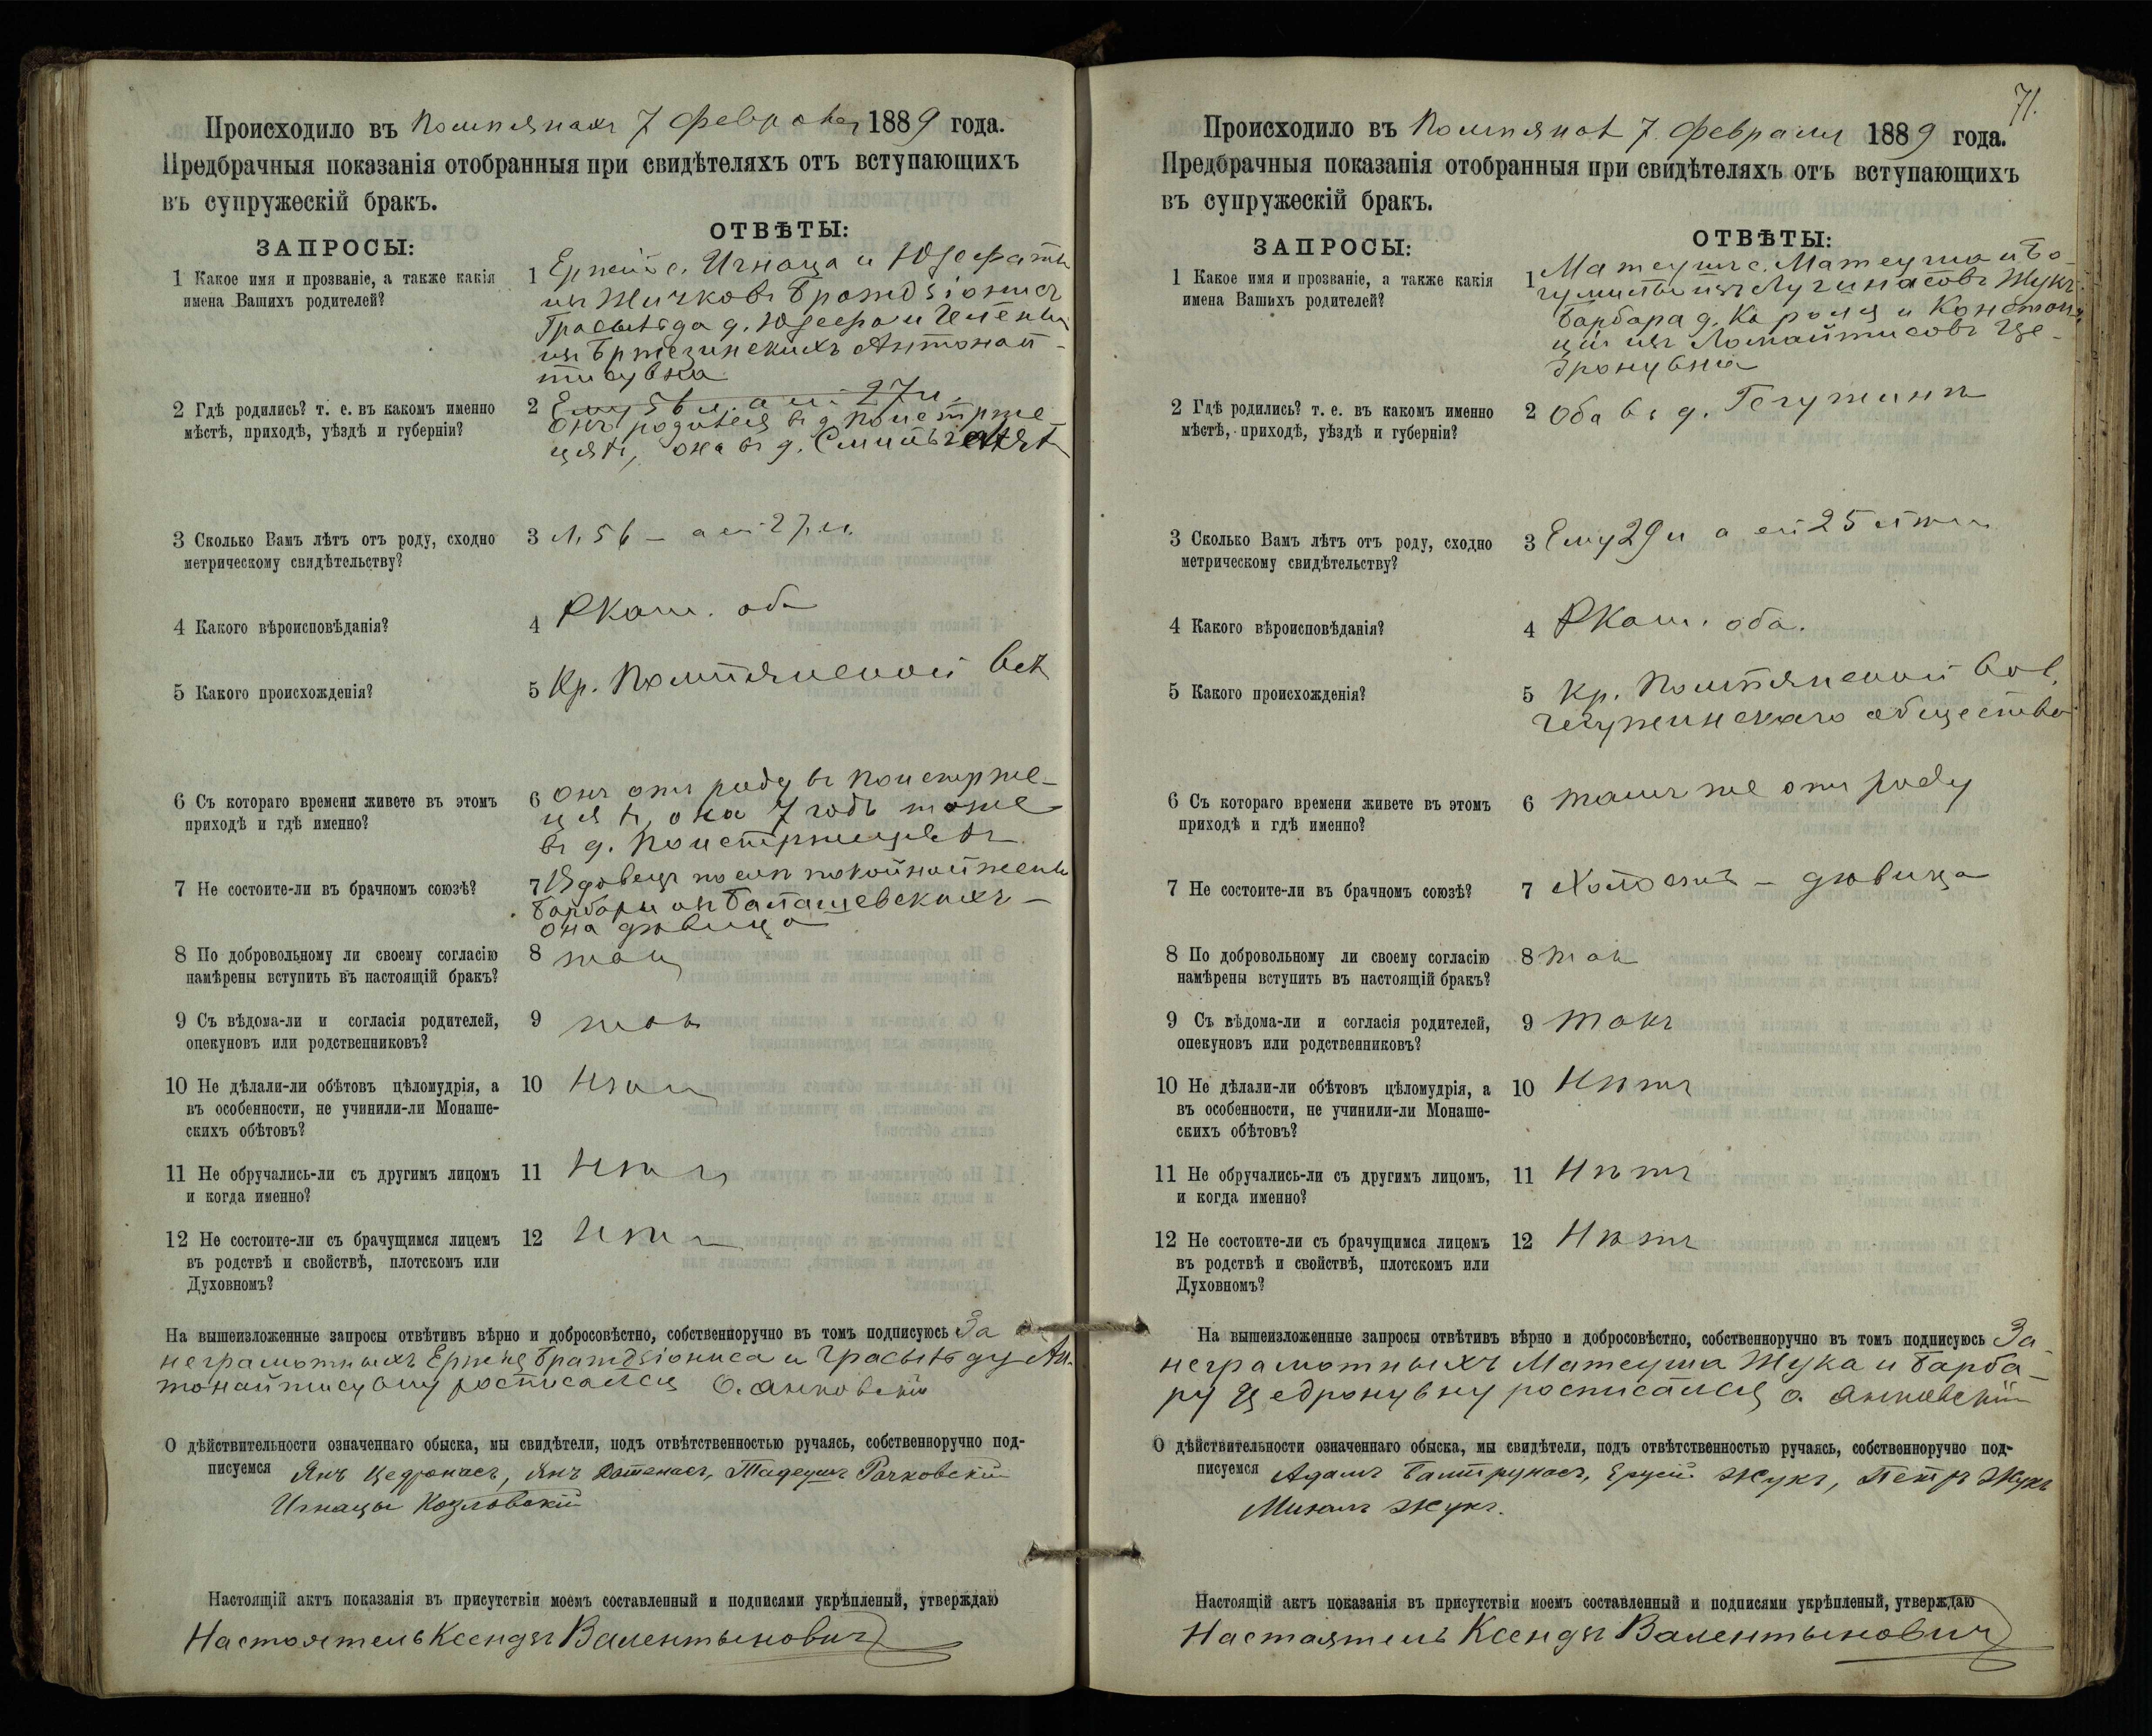 Происходило въ Помпянахъ 7 февраля 1889 года.
Предбрачныя показанія отобранныя при свидѣтеляхъ отъ вступающихъ
въ супружескій бракъ.
ЗАПРОСЫ:
ОТВѢТЫ:
1 Какое имя и прозваніе, а также какія
имена Вашихъ родителей?
1 Ержій с. Игнаца и Юзефаты
изъ Жичковъ
д. Юзефа и Елены
изъ Бржезинскихъ Антонай-
тисувна
2 Гдѣ родились? т. е. въ какомъ именно
мѣстѣ, приходѣ, уѣздѣ и губерніи?
2 Ему 56 л. а ей 27 л.
онъ родился въ д. Поистрже-
цяхъ, она въ д.
3 Сколько Вамъ лѣтъ отъ роду, сходно
метрическому свидѣтельству?
3 Л. 56 — а ей 27 л.
4 Какого вѣроисповѣданія?
4 РКат. оба
5 Какого происхожденія?
5 Кр. Помпянской вол
6 Съ котораго времени живете въ этомъ
приходѣ и гдѣ именно?
6 онъ отъ роду въ Поистрже-
цяхъ, она 7 годъ тоже
въ д. Поистржецяхъ
7 Не состоите-ли въ брачномъ союзѣ?
7 Вдовецъ послѣ покойной жены
Барбары изъ Балашевскихъ —
она дѣвица
8 По добровольному ли своему согласію
намѣрены вступить въ настоящій бракъ?
8 такъ
9 Съ вѣдома-ли и согласія родителей,
опекуновъ или родственниковъ?
9 такъ
10 Не дѣлали-ли обѣтовъ цѣломудрія, а
въ особенности, не учинили-ли Монаше-
скихъ обѣтовъ?
10 Нѣтъ
11 Не обручались-ли съ другимъ лицомъ
и когда именно?
11 Нѣтъ
12 Не состоите-ли съ брачущимся лицемъ
въ родствѣ и свойствѣ, плотскомъ или
Духовномъ?
12 Нѣтъ
На вышеизложенные запросы отвѣтивъ вѣрно и добросовѣстно, собственноручно въ томъ подписуюсь За
неграмотныхъ и Ан-
тонайтисувну росписался О. Янковскій
О дѣйствительности означеннаго обыска, мы свидѣтели, подъ отвѣтственностью ручаясь, собственноручно под-
писуемся Янъ Цедронасъ, Янъ Тадеушъ Рачковскій
Игнацы Козловскій
Настоящій актъ показанія въ присутствіи моемъ составленный и подписями укрѣпленый, утверждаю
Настоятель Ксендзъ Валентыновичъ
71.
Происходило въ Помпянахъ 7 февраля 1889 года.
Предбрачныя показанія отобранныя при свидѣтеляхъ отъ вступающихъ
въ супружескій бракъ.
ЗАПРОСЫ:
ОТВѢТЫ:
1 Какое имя и прозваніе, а также какія
имена Вашихъ родителей?
1 Матеушъ с. Матеуша и Бо-
гумилы изъ Лугинасовъ Жукъ
Барбара д. Кароля и Констан-
ціи изъ Ломайтисовъ Це-
дронувна
2 Гдѣ родились? т. е. въ какомъ именно
мѣстѣ, приходѣ, уѣздѣ и губерніи?
2 Оба въ д.
3 Сколько Вамъ лѣтъ отъ роду, сходно
метрическому свидѣтельству?
3 Ему 29 л а ей 25 лѣтъ
4 Какого вѣроисповѣданія?
4 РКат. оба.
5 Какого происхожденія?
5 Кр. Помпянской вол.
общества
6 Съ котораго времени живете въ этомъ
приходѣ и гдѣ именно?
6 тамъ же отъ роду
7 Не состоите-ли въ брачномъ союзѣ?
7 Холостъ — дѣвица
8 По добровольному ли своему согласію
намѣрены вступить въ настоящій бракъ?
8 такъ
9 Съ вѣдома-ли и согласія родителей,
опекуновъ или родственниковъ?
9 такъ
10 Не дѣлали-ли обѣтовъ цѣломудрія, а
въ особенности, не учинили-ли Монаше-
скихъ обѣтовъ?
10 Нѣтъ
11 Не обручались-ли съ другимъ лицомъ,
и когда именно?
11 Нѣтъ
12 Не состоите-ли съ брачущимся лицемъ
въ родствѣ и свойствѣ, плотскомъ или
Духовномъ?
12 Нѣтъ
На вышеизложенные запросы отвѣтивъ вѣрно и добросовѣстно, собственноручно въ томъ подписуюсь За
неграмотныхъ Матеуша Жука и Барба-
ру Цедронувну росписался О. Янковскій
О дѣйствительности означеннаго обыска, мы свидѣтели, подъ отвѣтственностью ручаясь, собственноручно под-
писуемся Адамъ Балтрунасъ, Ержій Жукъ, Петръ Жукъ
Михалъ Жукъ.
Настоящій актъ показанія въ присутствіи моемъ составленный и подписями укрѣпленый, утверждаю
Настоятель Ксендзъ Валентыновичъ